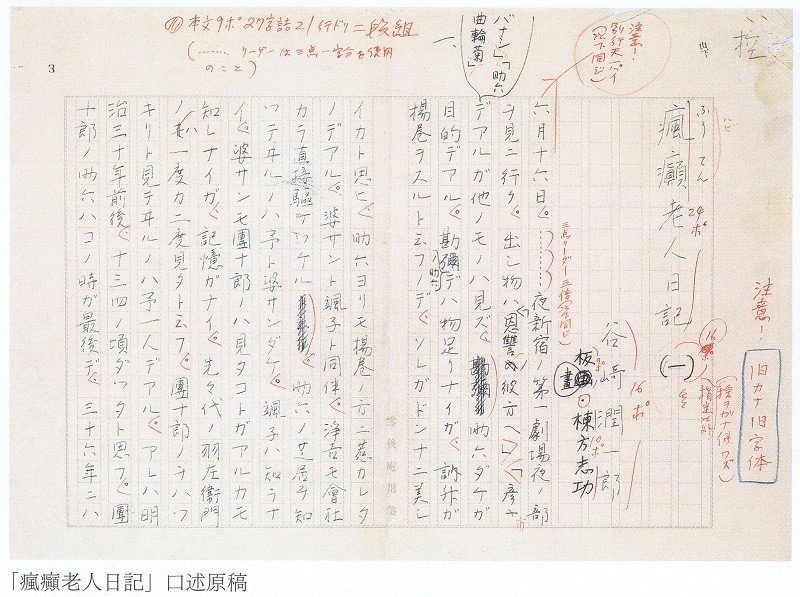 控
注意!
旧カナ旧字体
ふうてん
瘋癲老人日記
24ポ
(一)
谷崎潤一郎
16ポ
板画・棟方志功
注意!
別行天一パイ
六月十六日。……夜新宿ノ第一劇場夜ノ部
ヲ見ニ行ク。出シ物ハ「恩讐の彼方へ」「彦市
バナシ」「助六
曲輪菊」
デアルガ他ノモノハ見ズ、助六ダケガ
目的デアル。勘彌ノ助六デハ物足リナイガ、訥升ガ
揚巻ヲスルト云フノデ、ソレガドンナニ美シ
イカト思ヒ、助六ヨリモ揚巻ノ方ニ惹カレタ
ノデアル。婆サント颯子ト同伴。浄吉モ會社
カラ直接駆ケツケル。助六ノ芝居ヲ知
ツテヰルノハ予ト婆サンダケ、颯子ハ知ラナ
イ。婆サンモ團十郎ノハ見タコトガアルカモ
知レナイガ、記憶ガナイ。先々代ノ羽左衛門
ノヲ一度カ二度見タト云フ。團十郎ノヲハツ
キリト見テヰルノハ予一人デアル。アレハ明
治三十年前後、十三四ノ頃ダツタト思フ。團
十郎ノ助六ハコノ時ガ最後デ、三十六年ニハ
本文9ポ27字詰21行ドリ二段組
(……リーダーは三点一字分を使用
のこと)
3
「瘋癲老人日記」口述原稿